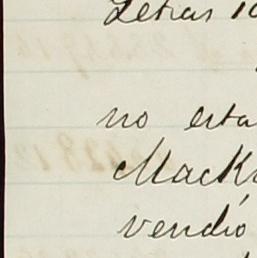 Letras
no esta
Mack
vendió